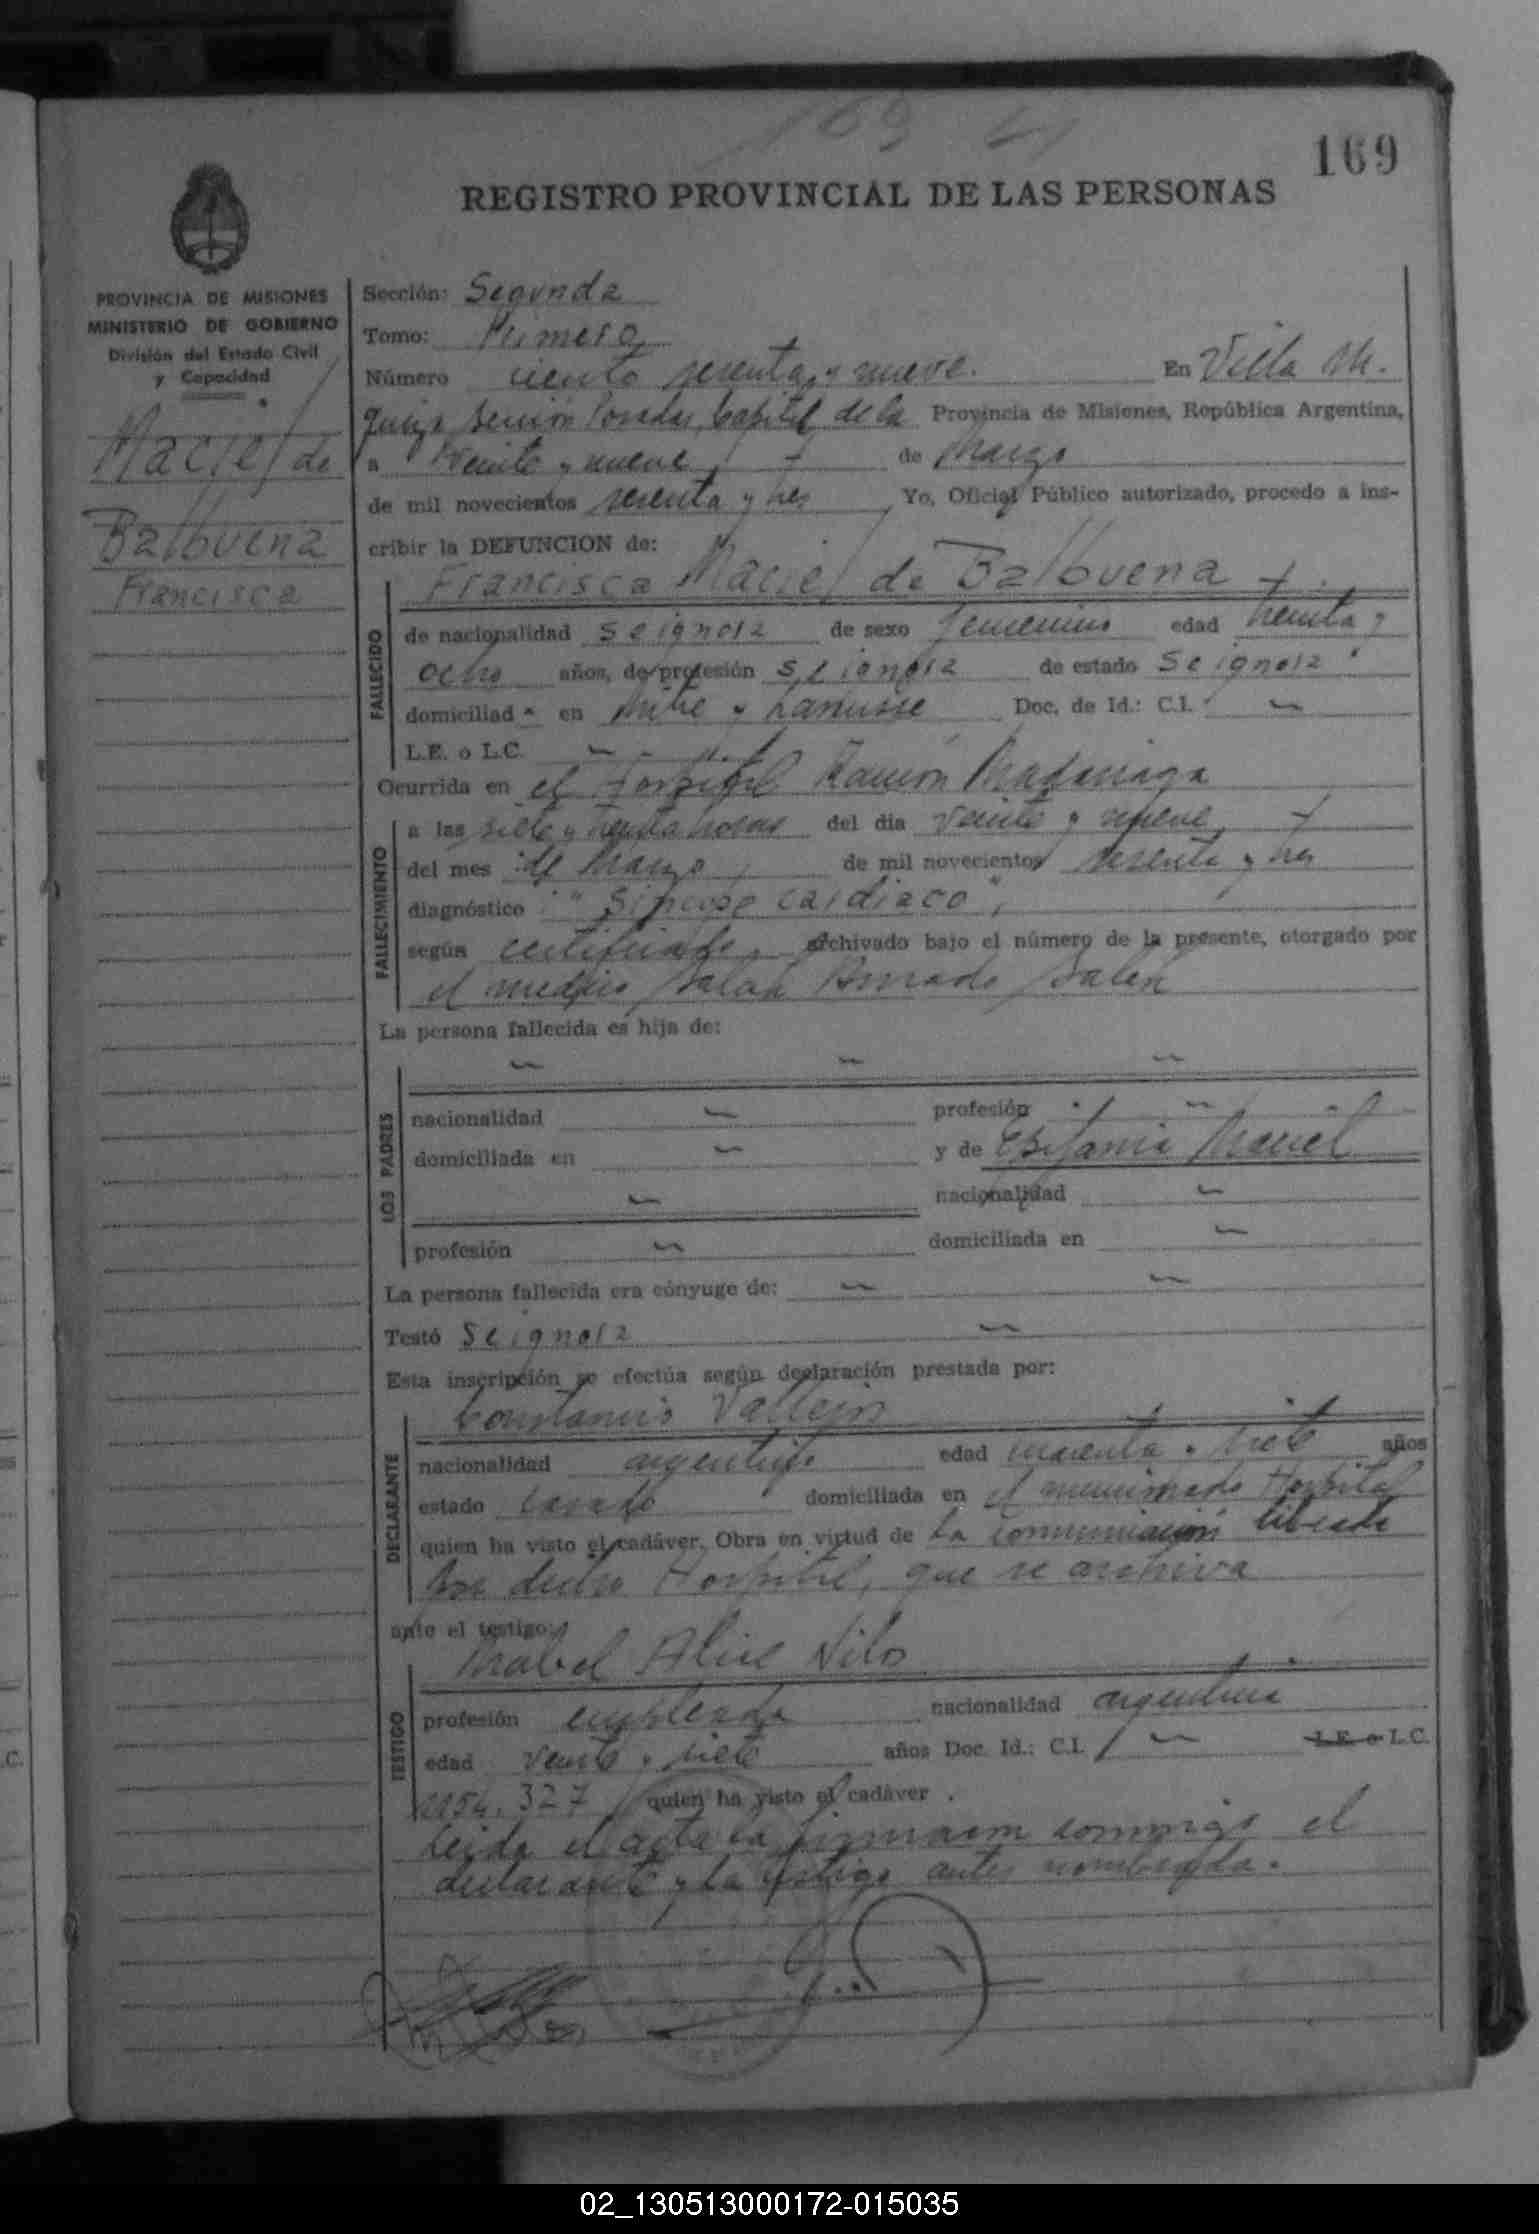 169
169
REGISTRO PROVINCIAL DE LAS PERSONAS
PROVINCIA DE MISIONES
MINISTERIO DE GOBIERNO
División del Estado Civil
y Capacidad
Maciel de
Balbuena
Francisca
Sección: Segunda
Tomo: Primero
Número ciento sesenta y nueve. En Villa M.
sección Posadas, Capital de la Provincia de Misiones, República Argentina,
a veinte y nueve de Marzo
de mil novecientos sesenta y tres Yo, Oficial Público autorizado, procedo a ins-
cribir la DEFUNCION de:
Francisca Maciel de Balbuena
FALLECIDO
de nacionalidad se ignora de sexo femenino edad treinta y
ocho años, de profesión se ignora de estado se ignora
domiciliad a en Mitre y Lanusse Doc. de Id.: C.I. —
L.E. o L.C. —
Ocurrida en el Hospital Ramón Madariaga
FALLECIMIENTO
a las siete y treinta horas del día veinte y nueve
del mes de Marzo de mil novecientos sesenta y tres
diagnóstico: "Síncope cardiaco",
según certificado archivado bajo el número de la presente, otorgado por
el médico Salah Amado Saleh
La persona fallecida es hija de:
LOS PADRES
nacionalidad — profesión —
domiciliada en — y de Epifania Maciel
— nacionalidad —
profesión — domiciliada en —
La persona fallecida era cónyuge de: — —
Testó se ignora —
Esta inscripción se efectúa según declaración prestada por:
Constancio Vallejos
DECLARANTE
nacionalidad argentino edad cuarenta y siete años
estado casado domiciliada en el mencionado Hospital
quien ha visto el cadáver. Obra en virtud de la comunicación librada
por dicho Hospital, que se archiva
ante el testigo:
Mabel Alice
TESTIGO
profesión empleada nacionalidad argentina
edad veinte y siete años Doc. Id.: C.I. — L.E. o L.C.
327 quien ha visto el cadáver.
Leida el acta la firmaron conmigo el
declarante y la testigo antes nombrada.
02_130513000172-015035